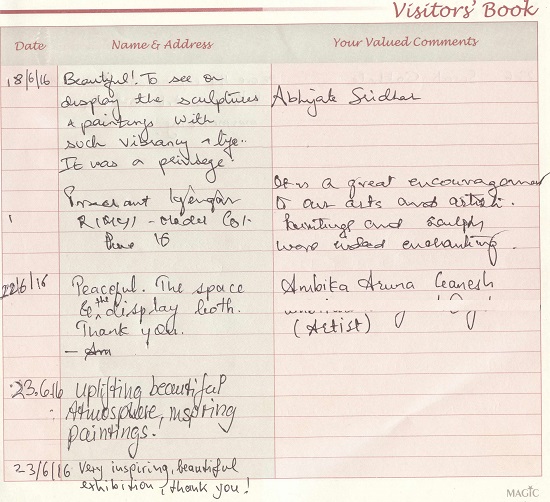 Visitors' Book
Date Name & Address Your Valued Comments
18/6/16 Beautiful! To see on
display the sculptures Abhijate Sridhar
& paintings with
such vibrancy & life.
It was a privilege!
Prashant Iyengar It is a great encouragement
RIMYI - Model Col. to our arts and artists.
Pune 16 Paintings and sculpts
were indeed enchanting.
22/6/16 Peaceful. The space Ambika Aruna Ganesh
& the display both.
Thank you. (Artist)
23.6.16 uplifting beautiful
Atmosphere, inspiring
paintings!
23/6/16 Very inspiring, beautiful
exhibition, thank you!
MAGIC